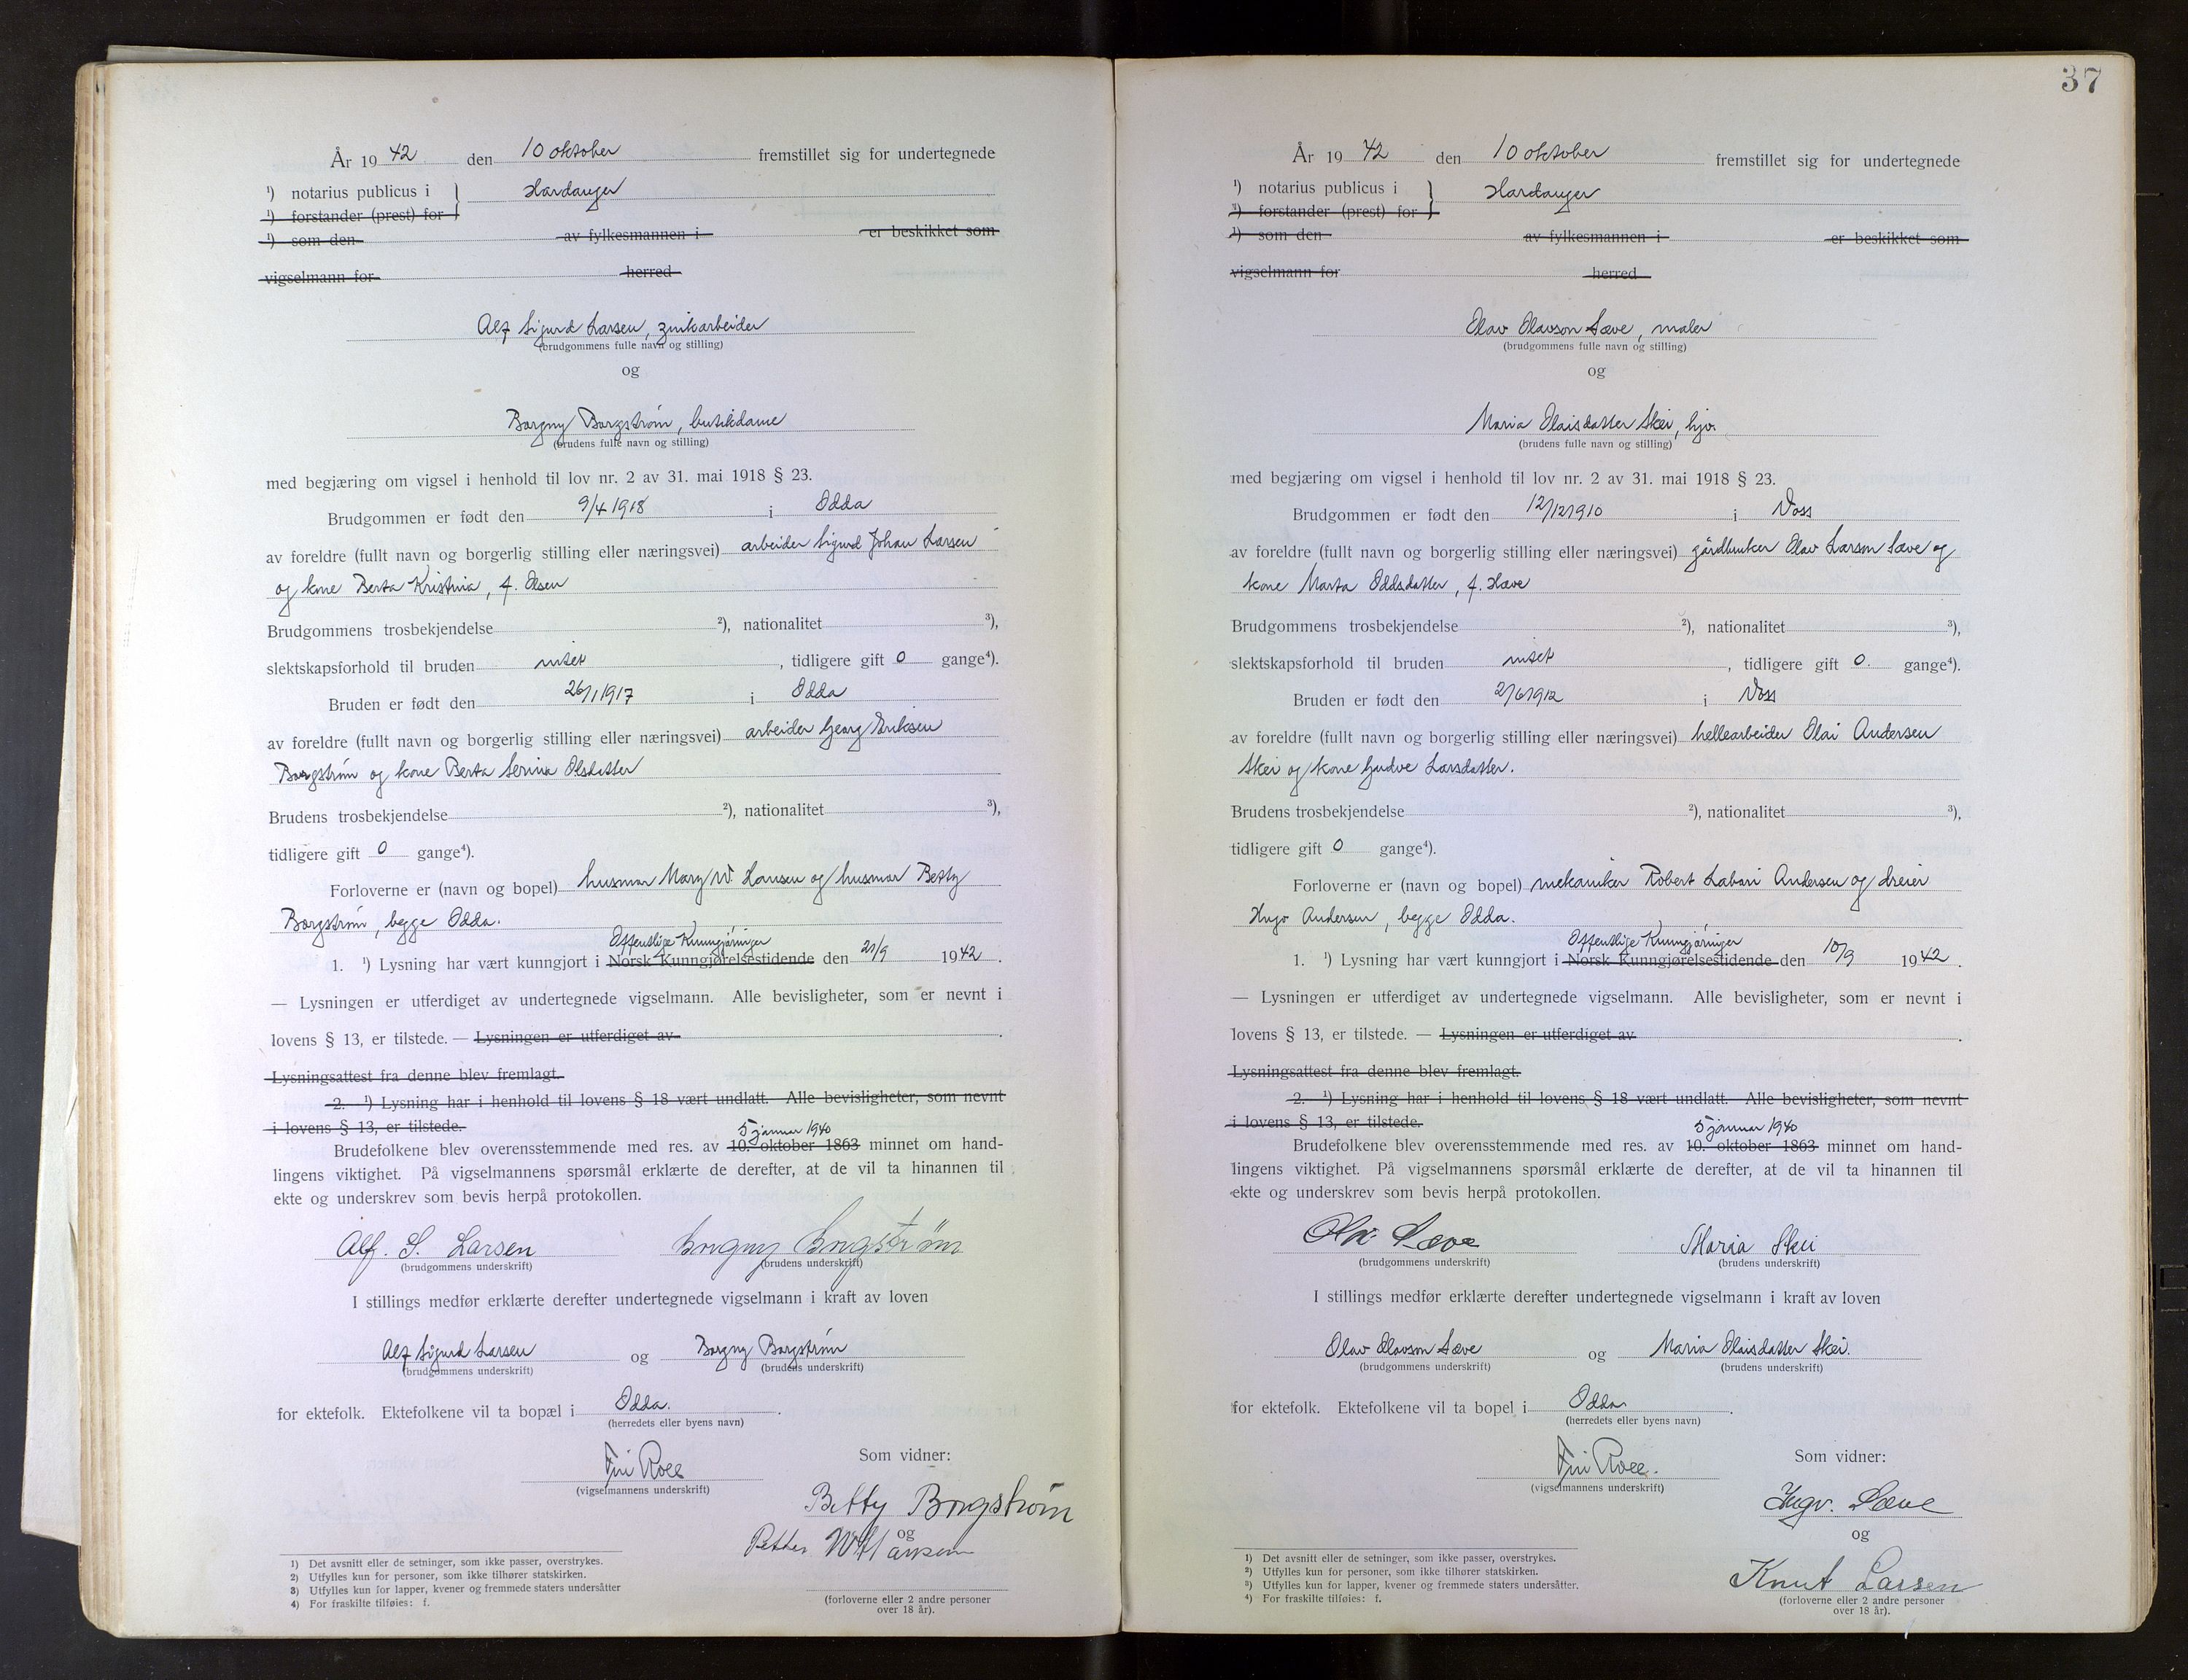 År 1942 den 10 oktober fremstillet sig for undertegnede
¹) notarius publicus i } Hardanger
¹) forstander (prest) for
¹) som den av fylkesmannen i er beskikket som
vigselmann for herred
Alf Sigurd Larsen, zinkarbeider
(brudgommens fulle navn og stilling)
og
Borgny Borgstrøm, butikdame
(brudens fulle navn og stilling)
med begjæring om vigsel i henhold til lov nr. 2 av 31. mai 1918 § 23.
Brudgommen er født den 9/4 1918 i Odda
av foreldre (fullt navn og borgerlig stilling eller næringsvei) arbeider Sigurd Johan Larsen
og kone Berta Kristina, f. Olsen
Brudgommens trosbekjendelse ²), nationalitet ³),
slektskapsforhold til bruden intet, tidligere gift 0 gange⁴).
Bruden er født den 26/1 1917 i Odda
av foreldre (fullt navn og borgerlig stilling eller næringsvei) arbeider Georg Eriksen
Borgstrøm og kone Berta Serina Olsdatter
Brudens trosbekjendelse ²), nationalitet ³),
tidligere gift 0 gange⁴).
Forloverne er (navn og bopel) husmor Mary W. Hansen og husmor Betty
Borgstrøm, begge Odda.
Offentlige Kunngjøringer
1. ¹) Lysning har vært kunngjort i Norsk Kunngjørelsestidende den 21/9 1942.
— Lysningen er utferdiget av undertegnede vigselmann. Alle bevisligheter, som er nevnt i
lovens § 13, er tilstede. — Lysningen er utferdiget av .
Lysningsattest fra denne blev fremlagt.
2. ¹) Lysning har i henhold til lovens § 18 vært undlatt. Alle bevisligheter, som nevnt
i lovens § 13, er tilstede.
5 januar 1940
Brudefolkene blev overensstemmende med res. av 10. oktober 1863 minnet om hand-
lingens viktighet. På vigselmannens spørsmål erklærte de derefter, at de vil ta hinannen til
ekte og underskrev som bevis herpå protokollen.
Alf. S. Larsen Borgny Borgstrøm
(brudgommens underskrift) (brudens underskrift)
I stillings medfør erklærte derefter undertegnede vigselmann i kraft av loven
Alf Sigurd Larsen og Borgny Borgstrøm
(brudgommens underskrift) (brudens underskrift)
for ektefolk. Ektefolkene vil ta bopæl i Odda.
(herredets eller byens navn)
Som vidner:
(vigselmannens underskrift)
Betty Borgstrøm
og
Petter W Hansen
(forloverne eller 2 andre personer
over 18 år).
1) Det avsnitt eller de setninger, som ikke passer, overstrykes.
2) Utfylles kun for personer, som ikke tilhører statskirken.
3) Utfylles kun for lapper, kvener og fremmede staters undersåtter
4) For fraskilte tilføies: f.
37
År 1942 den 10 oktober fremstillet sig for undertegnede
¹) notarius publicus i } Hardanger
¹) forstander (prest) for
¹) som den av fylkesmannen i er beskikket som
vigselmann for herred
Olav Olavson Sæve, maler
(brudgommens fulle navn og stilling)
og
Maria Olaisdatter Skei, hjv.
(brudens fulle navn og stilling)
med begjæring om vigsel i henhold til lov nr. 2 av 31. mai 1918 § 23.
Brudgommen er født den 12/12 1910 i Voss
av foreldre (fullt navn og borgerlig stilling eller næringsvei) gårdbruker Olav Larson Sæve og
kone Marta Oddsdatter, f. Hæve
Brudgommens trosbekjendelse ²), nationalitet ³),
slektskapsforhold til bruden intet, tidligere gift 0. gange⁴).
Bruden er født den 2/6 1912 i Voss
av foreldre (fullt navn og borgerlig stilling eller næringsvei) hellearbeider Olai Andersen
Skei og kone Gudve Larsdatter.
Brudens trosbekjendelse ²), nationalitet ³),
tidligere gift 0 gange⁴).
Forloverne er (navn og bopel) mekaniker Robert Labori Andersen og dreier
Hugo Andersen, begge Odda.
Offentlige Kunngjøringer
1. ¹) Lysning har vært kunngjort i Norsk Kunngjørelsestidende den 10/9 1942.
— Lysningen er utferdiget av undertegnede vigselmann. Alle bevisligheter, som er nevnt i
lovens § 13, er tilstede. — Lysningen er utferdiget av .
Lysningsattest fra denne blev fremlagt.
2. ¹) Lysning har i henhold til lovens § 18 vært undlatt. Alle bevisligheter, som nevnt
i lovens § 13, er tilstede.
5 januar 1940
Brudefolkene blev overensstemmende med res. av 10. oktober 1863 minnet om hand-
lingens viktighet. På vigselmannens spørsmål erklærte de derefter, at de vil ta hinannen til
ekte og underskrev som bevis herpå protokollen.
Olav Sæve Maria Skei
(brudgommens underskrift) (brudens underskrift)
I stillings medfør erklærte derefter undertegnede vigselmann i kraft av loven
Olav Olavson Sæve og Maria Olaisdatter Skei.
(brudgommens underskrift) (brudens underskrift)
for ektefolk. Ektefolkene vil ta bopel i Odda.
(herredets eller byens navn)
Som vidner:
(vigselmannens underskrift)
Ingv. Sæve
og
Knut Larsen
(forloverne eller 2 andre personer
over 18 år).
1) Det avsnitt eller de setninger, som ikke passer, overstrykes.
2) Utfylles kun for personer, som ikke tilhører statskirken.
3) Utfylles kun for lapper, kvener og fremmede staters undersåtter.
4) For fraskilte tilføies: f.